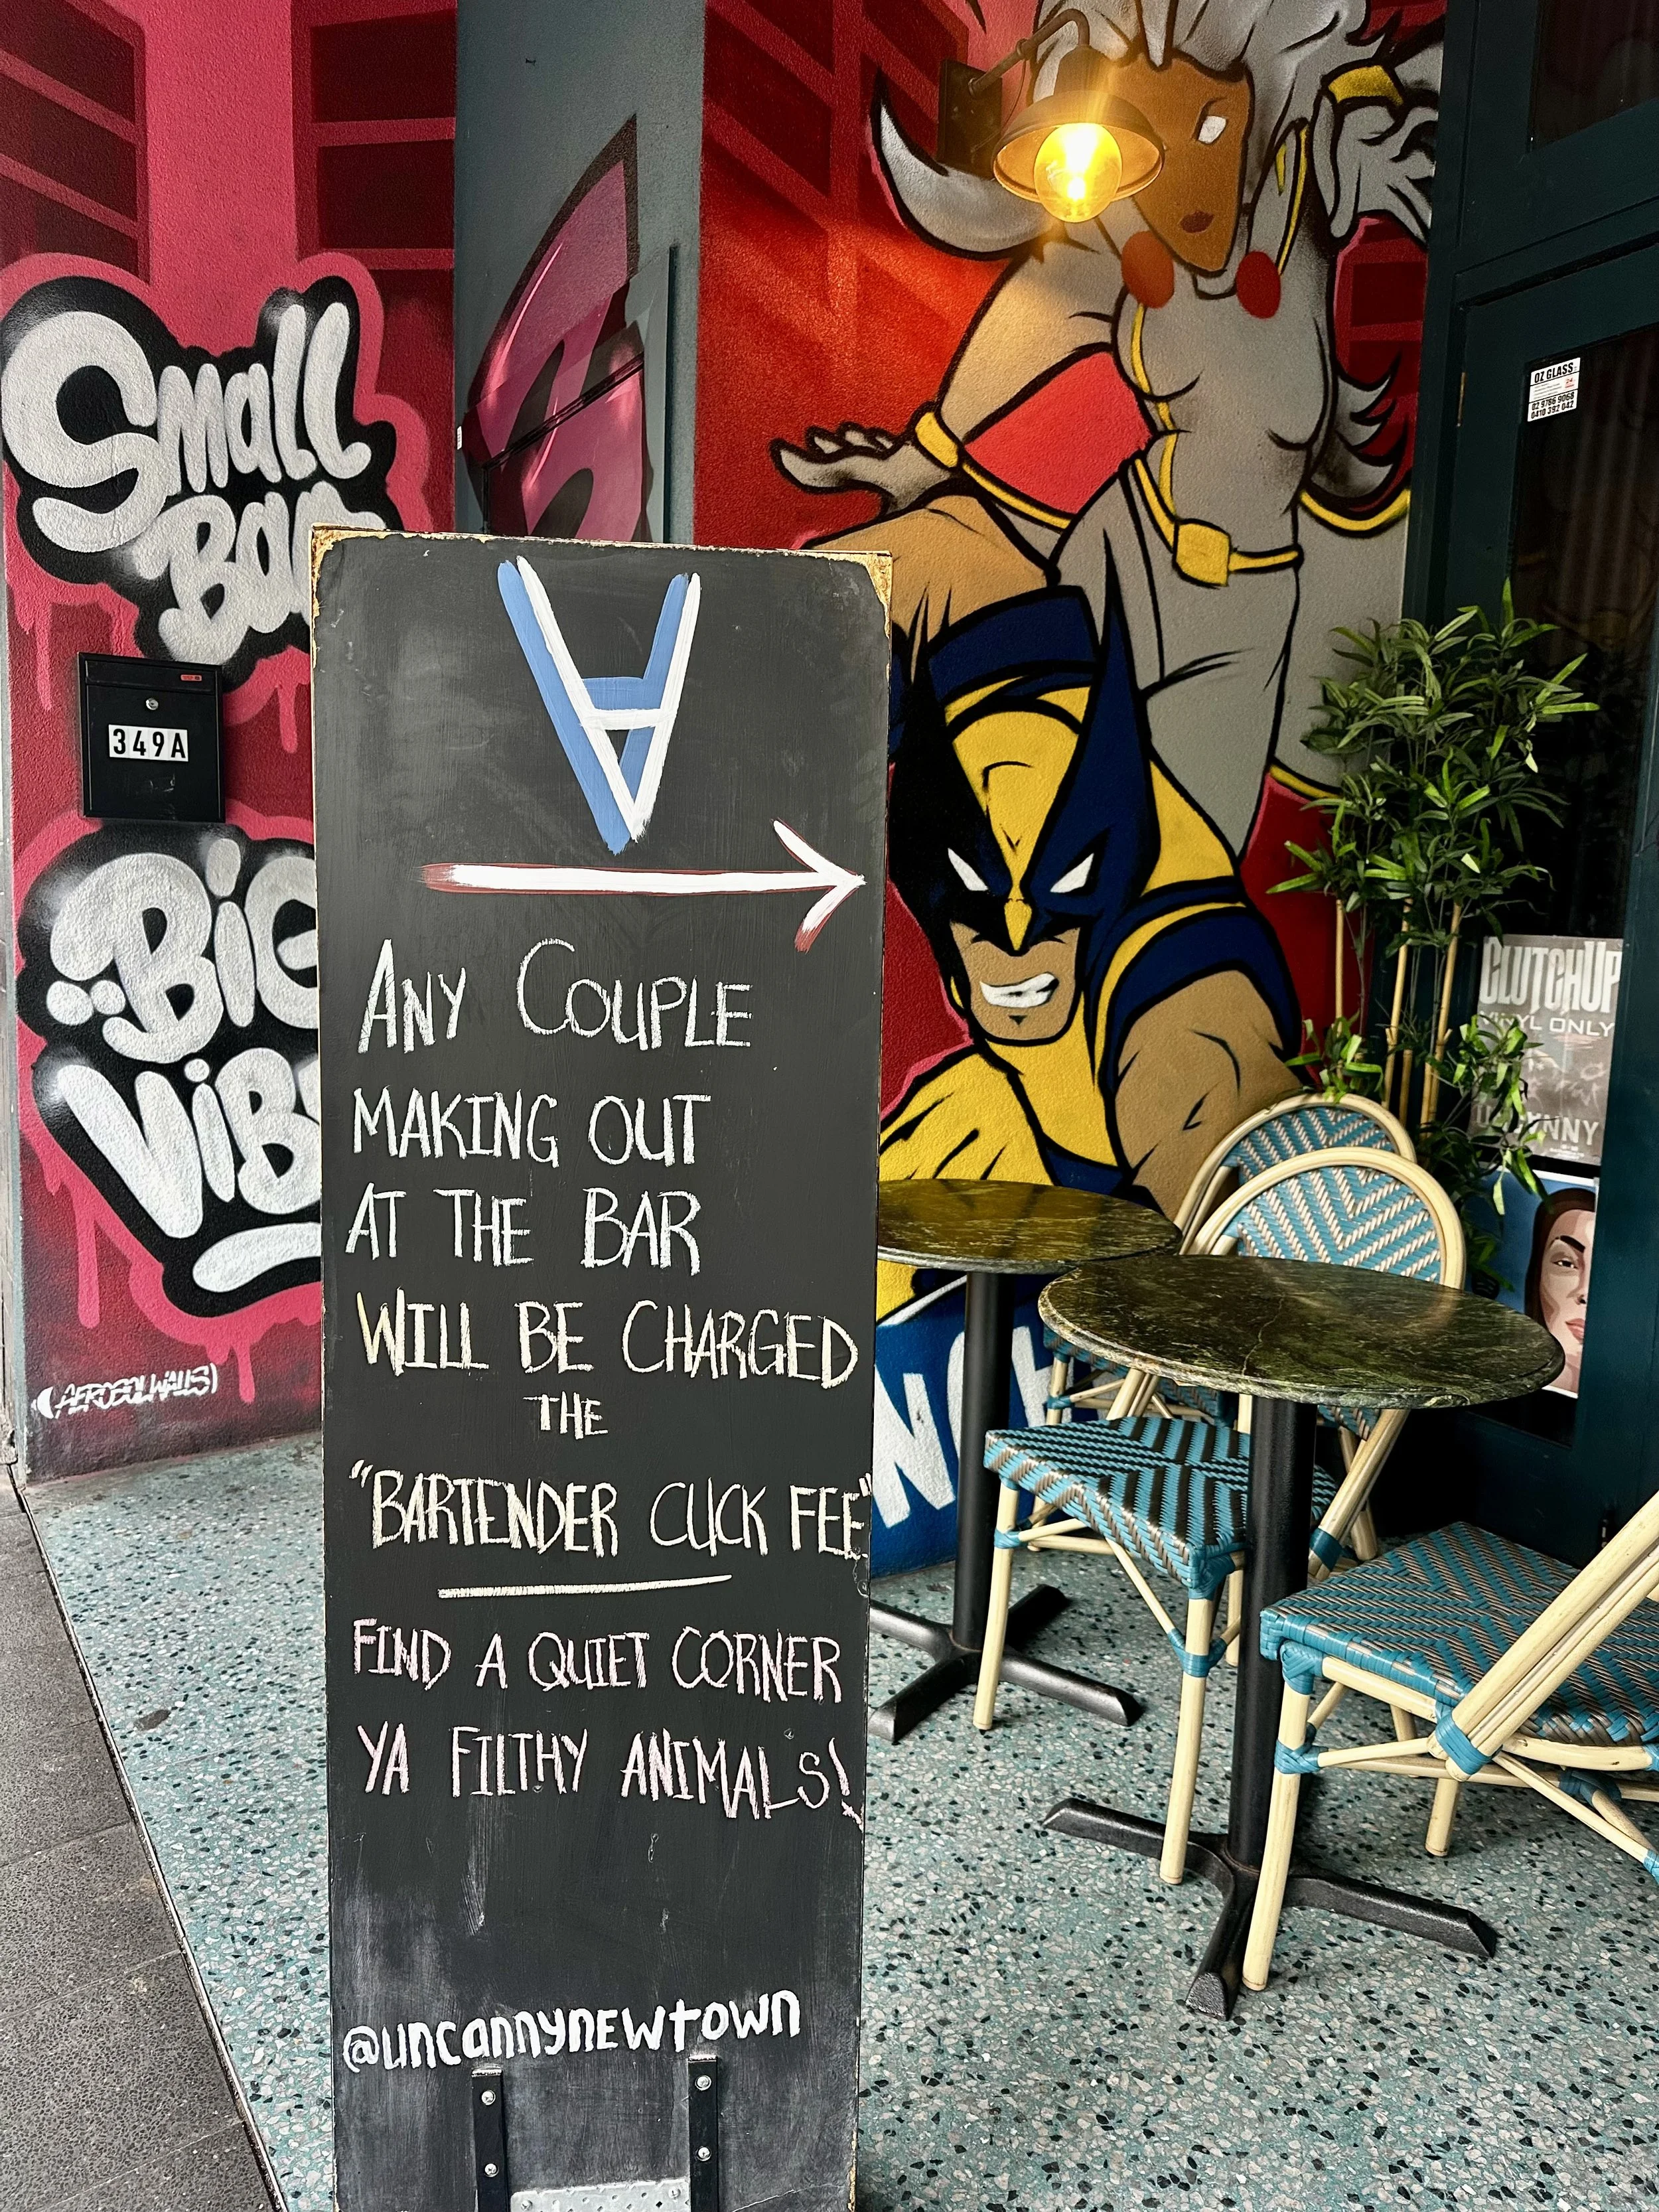 Small
Bar
349A
BiG
ViB
(AEROSOLWALLS)
∀
ANY COUPLE
MAKING OUT
AT THE BAR
WILL BE CHARGED
THE
"BARTENDER CUCK FEE"
FIND A QUIET CORNER
YA FILTHY ANIMALS!
@uncannynewtown
OZ GLASS
24
02 9786 9068
0410 392 042
CLUTCHUP
VINYL ONLY